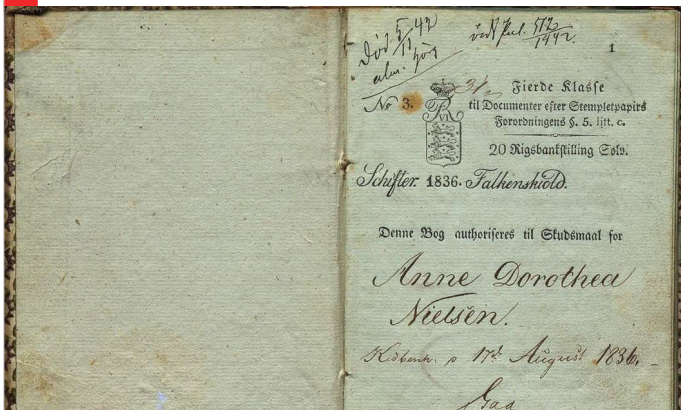 Død 5/11 42
alm. Hosp
1
No 3.
Fierde Klasse
til Documenter efter Stempletpapirs
Forordningens §. 5. litt. c.
20 Rigsbankskilling Sølv.
Schifter. 1836. Falkenskiold.
Denne Bog authoriseres til Skudsmaal for
Anne Dorothea
Nielsen.
17de August 1836.